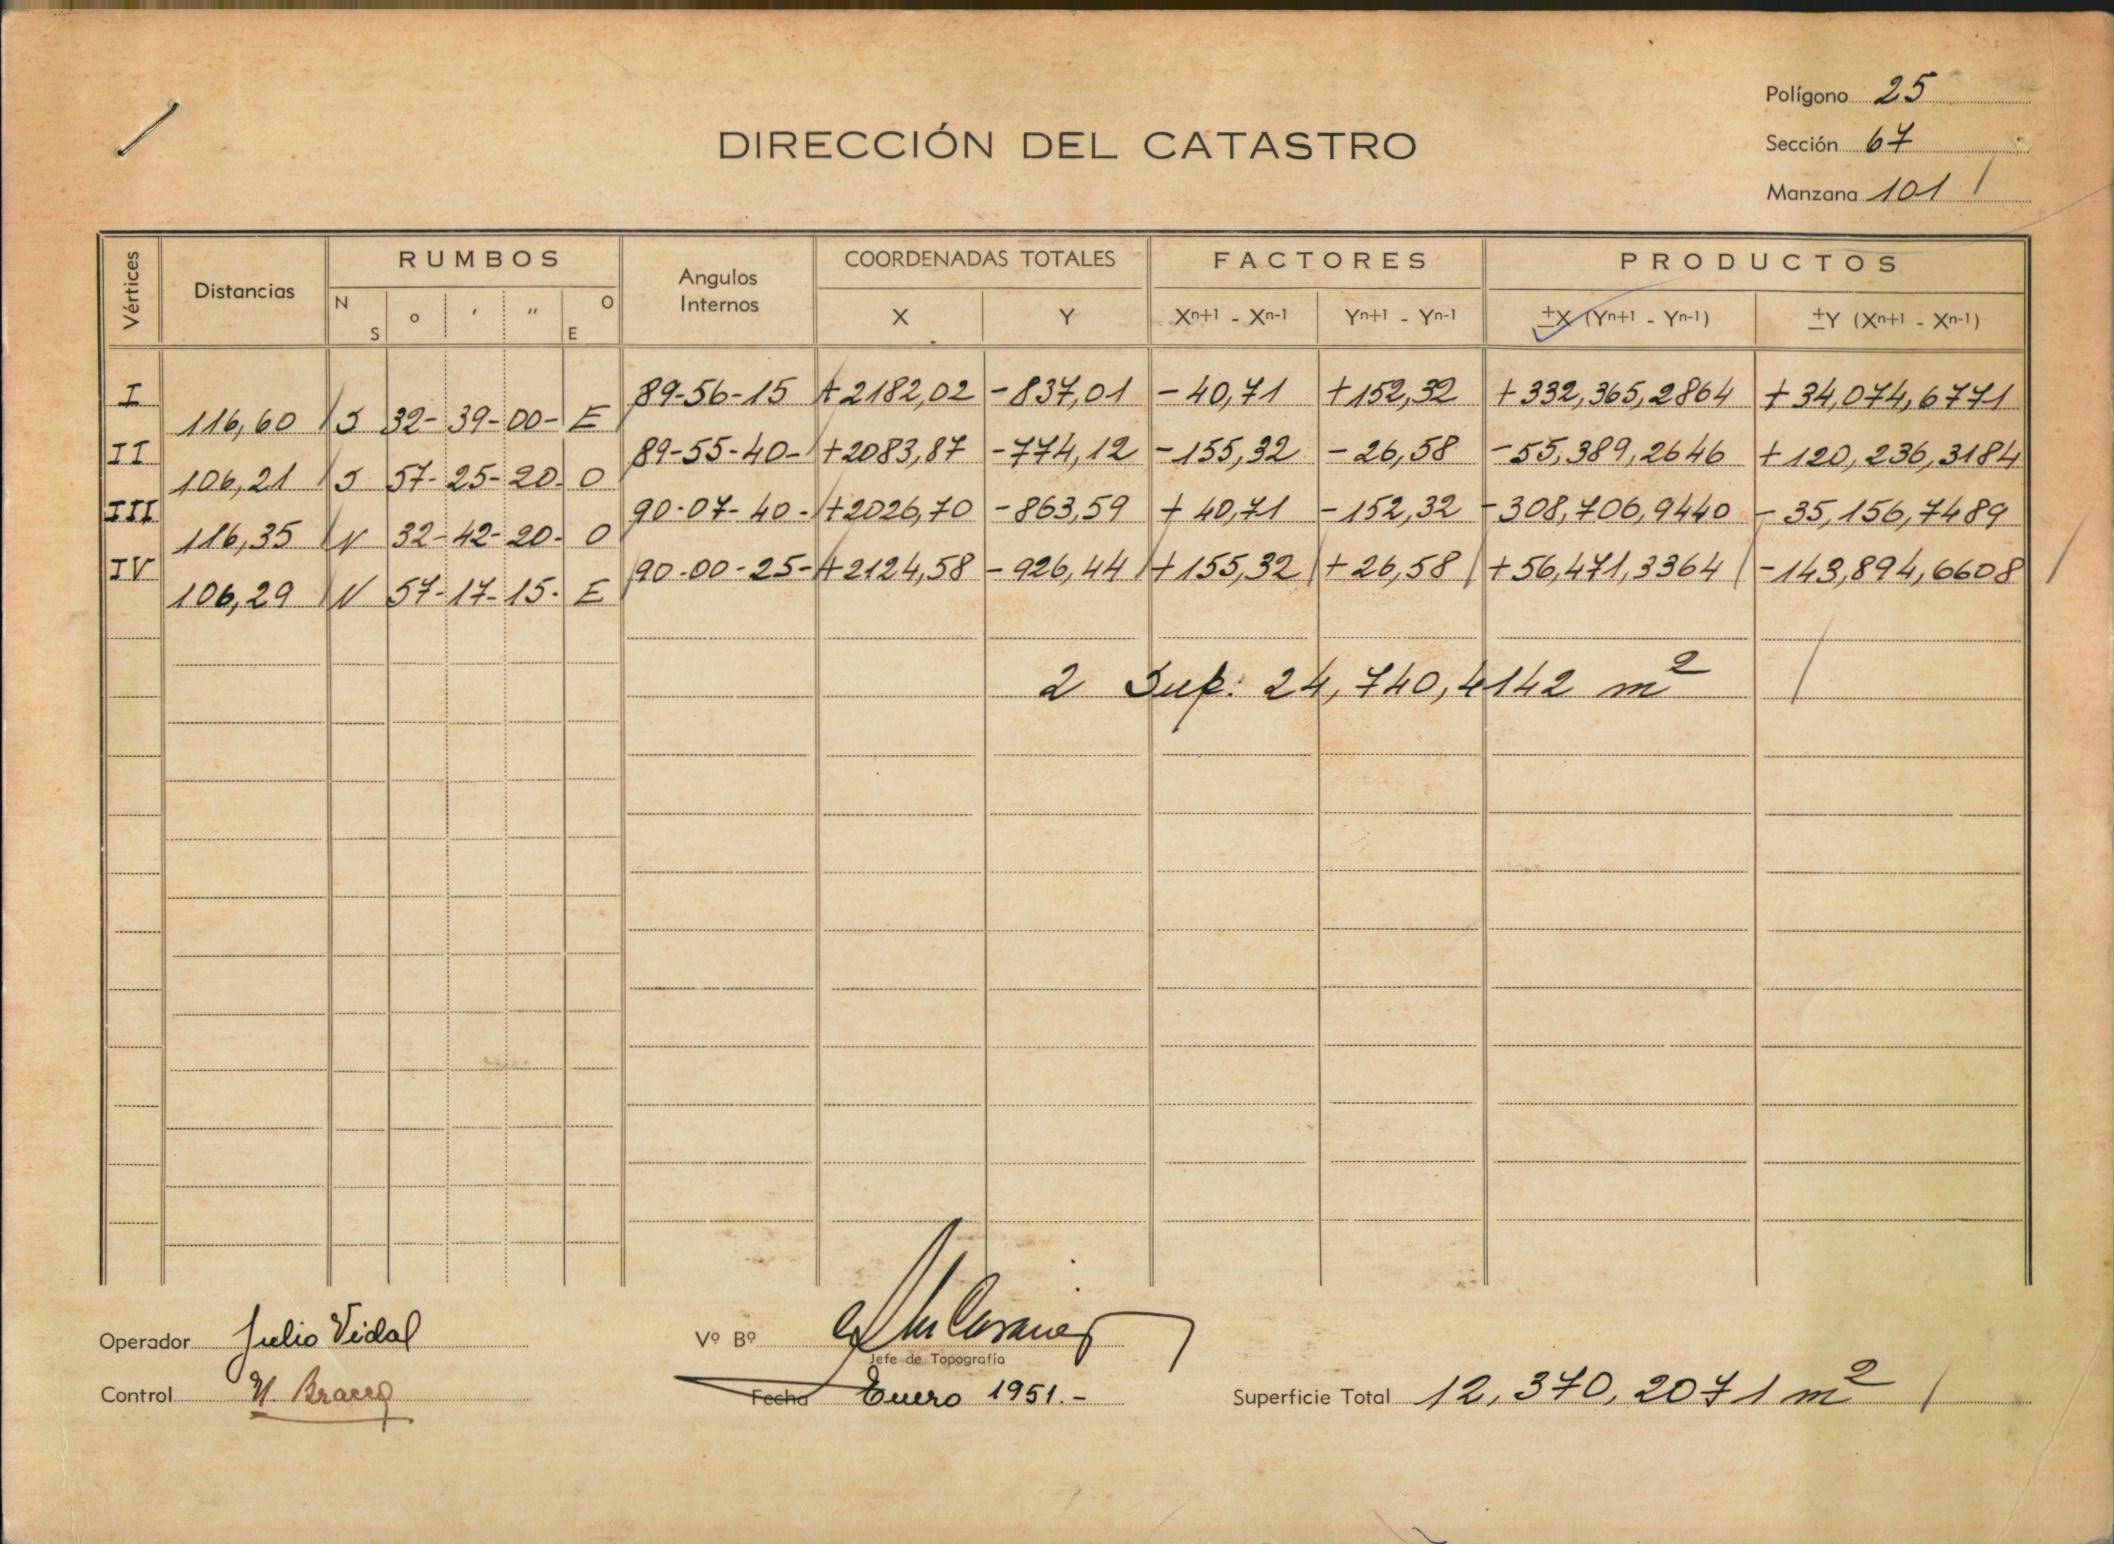 Polígono 25
DIRECCIÓN DEL CATASTRO
Sección 67
Manzana 101
Vértices Distancias RUMBOS Angulos Internos COORDENADAS TOTALES FACTORES PRODUCTOS
N S o ' " O E X Y Xn+1 - Xn-1 Yn+1 - Yn-1 ±X (Yn+1 - Yn-1) ±Y (Xn+1 - Xn-1)
I 89-56-15 +2182,02 -837,01 -40,71 +152,32 +332,365,2864 +34,074,6771
116,60 S 32- 39- 00- E
II 89-55-40- +2083,87 -774,12 -155,32 -26,58 -55,389,2646 +120,236,3184
106,21 S 57- 25- 20- O
III 90-07-40- +2026,70 -863,59 +40,71 -152,32 -308,706,9440 -35,156,7489
116,35 N 32- 42- 20- O
IV 90-00-25- +2124,58 -926,44 +155,32 +26,58 +56,471,3364 -143,894,6608
106,29 N 57- 17- 15- E
2 Sup: 24,740,4142 m²
Operador Julio Vidal Vº Bº
Jefe de Topografía
Control Fecha Enero 1951.- Superficie Total 12,370,2071 m²